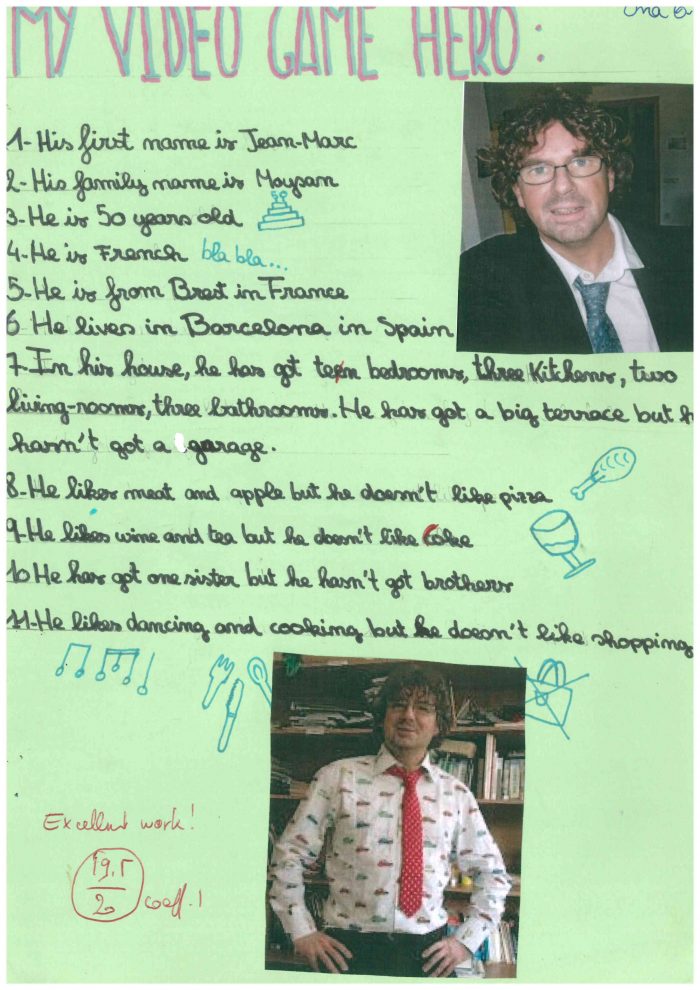 MY VIDEO GAME HERO :
1- His first name is Jean-Marc
2- His family name is Moysan
3- He is 50 years old
4- He is French bla bla...
5- He is from Brest in France
6 He lives in Barcelona in Spain
7- In his house, he has got teen bedrooms, three Kitchens, two
living-rooms, three bathrooms. He has got a big terrace but h
hasn't got a garage.
8- He likes meat and apple but he doesn't like pizza
9- He likes wine and tea but he doesn't like Coke
10 He has got one sister but he hasn't got brothers
11- He likes dancing and cooking but he doesn't like shopping
Excellent work!
19,5
20 coeff. 1